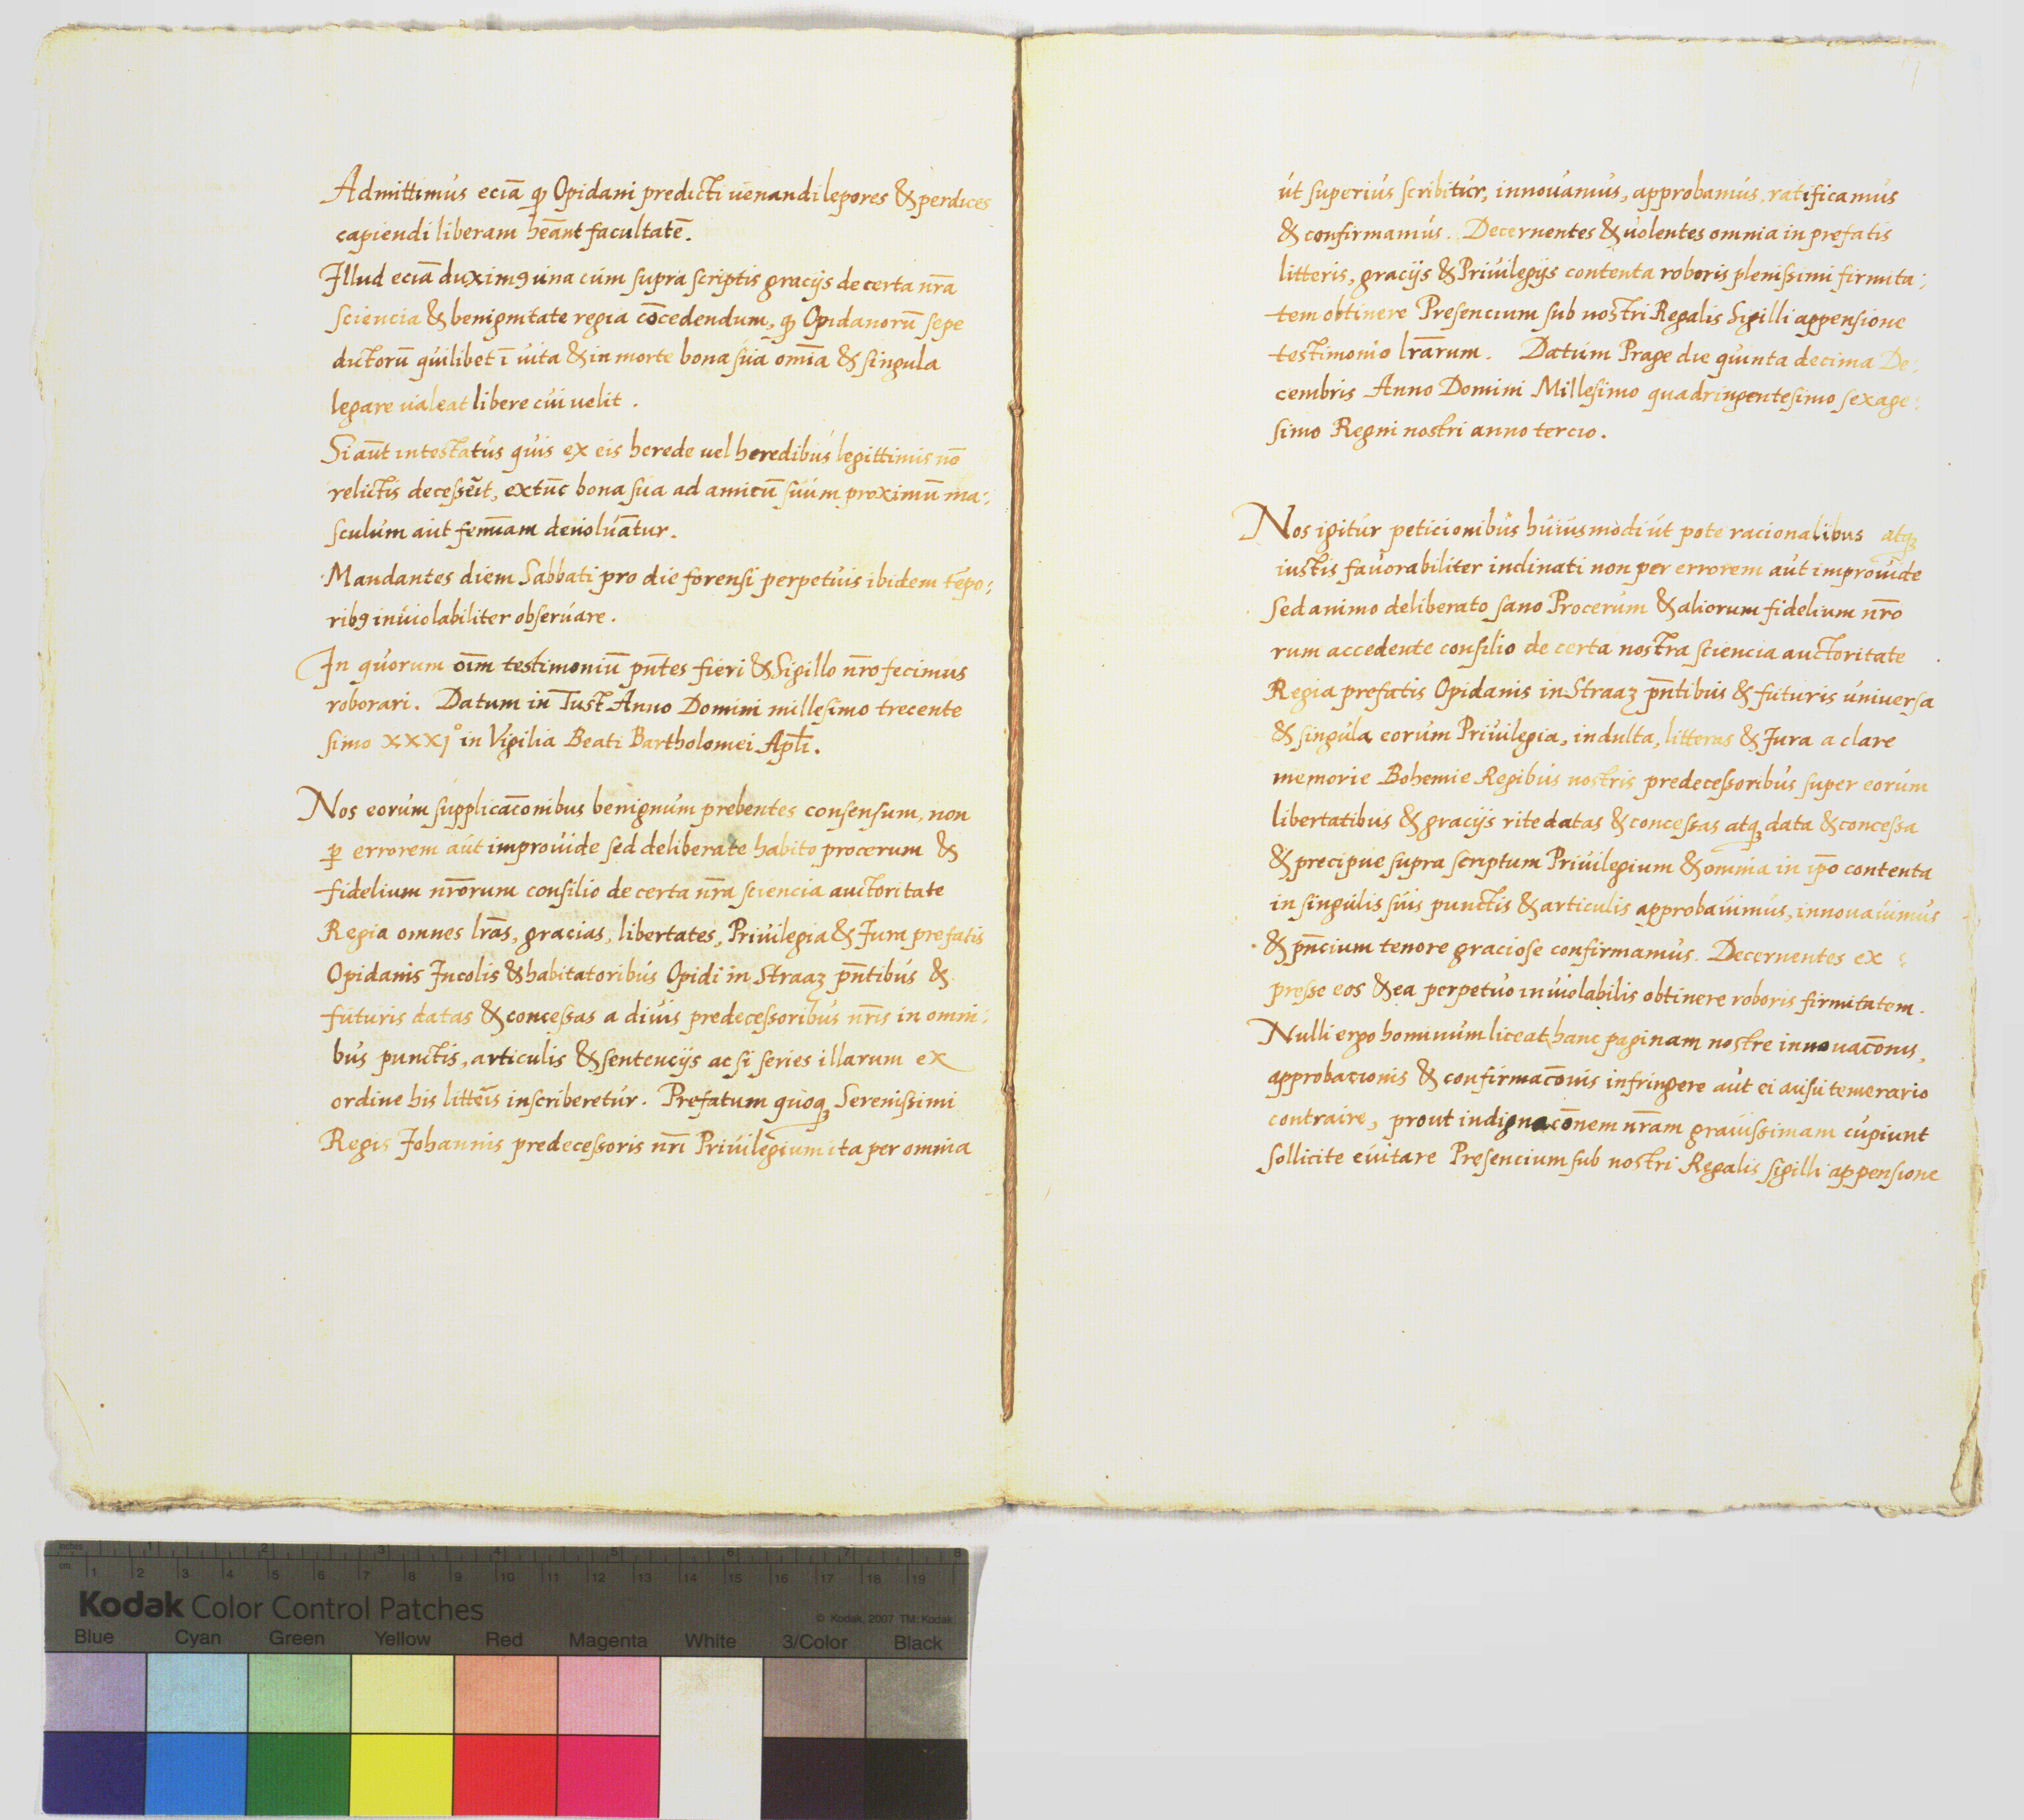 Admittimus eciā qꝫ Opidani predicti venandi lepores & perdices
capiendi liberam hēant facultatē.
Illud eciā duximꝰ una cum supra scriptis gracijs de certa nr̄a
sciencia & benignitate regia cōcedendum, qꝫ Opidanorū sepe
dictorū quilibet ī vita & in morte bona sua om̄ia & singula
legare valeat libere cui velit.
Si aūt intestatus quis ex eis herede vel heredibus legittimis nō
relictis decesserīt, extūc bona sua ad amicū suum proximū ma:
sculum aut femīam devoluātur.
Mandantes diem Sabbati pro die forensi perpetuis ibidem tēpo:
ribꝰ inviolabiliter observare.
In quorum oīm testimoniū pn̄tes fieri & Sigillo nr̄o fecimus
roborari. Datum in Tust Anno Domini millesimo trecente
simo XXXjº in Vigilia Beati Bartholomei Apl̄i.
Nos eorum supplicac̄onibus benignum prebentes consensum, non
ꝑ errorem aut improvide sed deliberate habito procerum &
fidelium nr̄orum consilio de certa nr̄a sciencia auctoritate
Regia omnes lrās, gracias, libertates, Privilegia & Jura prefatis
Opidanis Incolis & habitatoribus Opidi in Straaz pn̄tibus &
futuris datas & concessas a divis predecessoribus nr̄is in omni:
bus punctis, articulis & sentencijs ac si series illarum ex
ordine his littēis inscriberetur. Prefatum quoqꝫ Serenissimi
Regis Johannis predecessoris nr̄i Privilegium ita per omnia
ut superius scribitur, innovamus, approbamus, ratificamus
& confirmamus. Decernentes & volentes omnia in prefatis
litteris, gracijs & Privilegijs contenta roboris plenissimi firmita:
tem obtinere Presencium sub nostri Regalis Sigilli appensione
testimonio lrārum. Datum Prage die quinta decima De:
cembris Anno Domini Millesimo quadringentesimo sexage:
simo Regni nostri anno tercio.
Nos igitur peticionibus huiusmodi ut pote racionalibus atqꝫ
iustis favorabiliter inclinati non per errorem aut improvide
sed animo deliberato sano Procerum & aliorum fidelium nr̄o
rum accedente consilio de certa nostra sciencia auctoritate
Regia prefatis Opidanis in Straaz pn̄tibus & futuris universa
& singula eorum Privilegia, indulta, litteras & Jura a clare
memorie Bohemie Regibus nostris predecessoribus super eorum
libertatibus & gracijs rite datas & concessas atqꝫ data & concessa
& precipue supra scriptum Privilegium & omnia in ip̄o contenta
in singulis suis punctis & articulis approbavimus, innovavimus
& pn̄cium tenore graciose confirmamus. Decernentes ex :
presse eos & ea perpetuo inviolabilis obtinere roboris firmitatem.
Nulli ergo hominum liceat hanc paginam nostre innovac̄onis,
approbacionis & confirmac̄onis infringere aut ei ausu temerario
contraire, prout indignac̄onem nr̄am gravissimam cupiunt
sollicite evitare Presencium sub nostri Regalis sigilli appensione
inches 1 2 3 4 5 6 7 8
cm 1 2 3 4 5 6 7 8 9 10 11 12 13 14 15 16 17 18 19
Kodak Color Control Patches
© Kodak, 2007 TM: Kodak
Blue Cyan Green Yellow Red Magenta White 3/Color Black